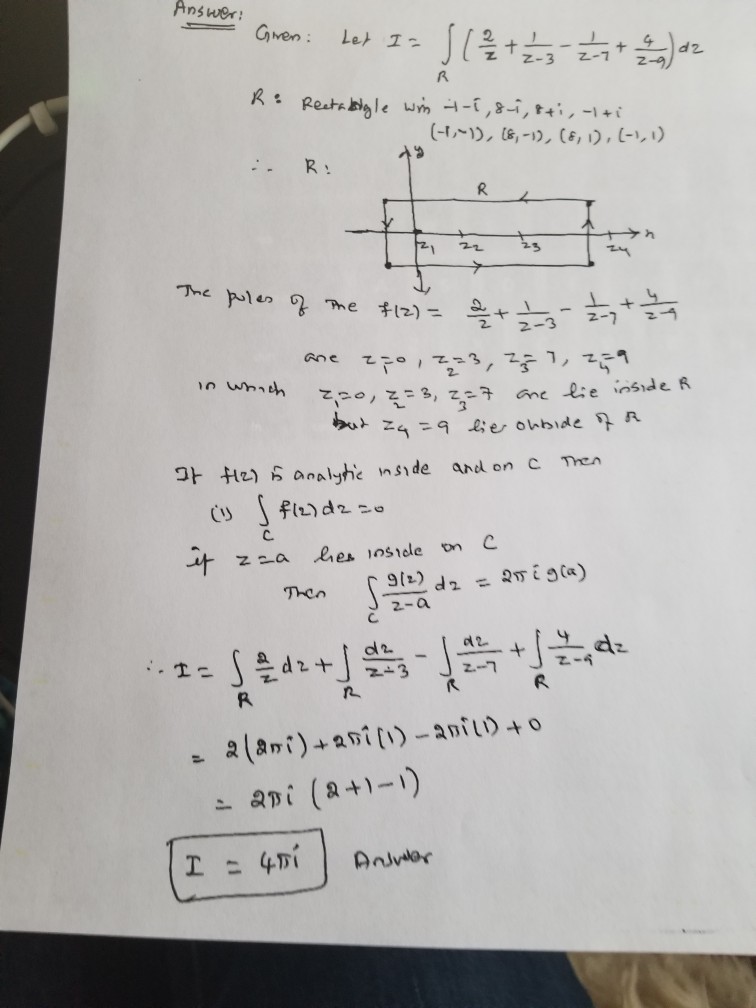 Answer:
Given: Let I = ∫_R (2/z + 1/(z-3) - 1/(z-7) + 4/(z-9)) dz
R: Rectangle with -1-i, 8-i, 8+i, -1+i
(-1,-1), (8,-1), (8,1), (-1,1)
∴ R:
y
R
z₁ z₂ z₃ z₄ x
The poles of the f(z) = 2/z + 1/(z-3) - 1/(z-7) + 4/(z-9)
are z₁=0, z₂=3, z₃=7, z₄=9
in which z₁=0, z₂=3, z₃=7 are lie inside R
but z₄=9 lies outside of R
If f(z) is analytic inside and on C Then
(i) ∫_C f(z) dz = 0
if z=a lies inside on C
Then ∫_C g(z)/(z-a) dz = 2πi g(a)
∴ I = ∫_R 2/z dz + ∫_R dz/(z-3) - ∫_R dz/(z-7) + ∫_R 4/(z-9) dz
= 2(2πi) + 2πi(1) - 2πi(1) + 0
= 2πi (2+1-1)
I = 4πi Answer